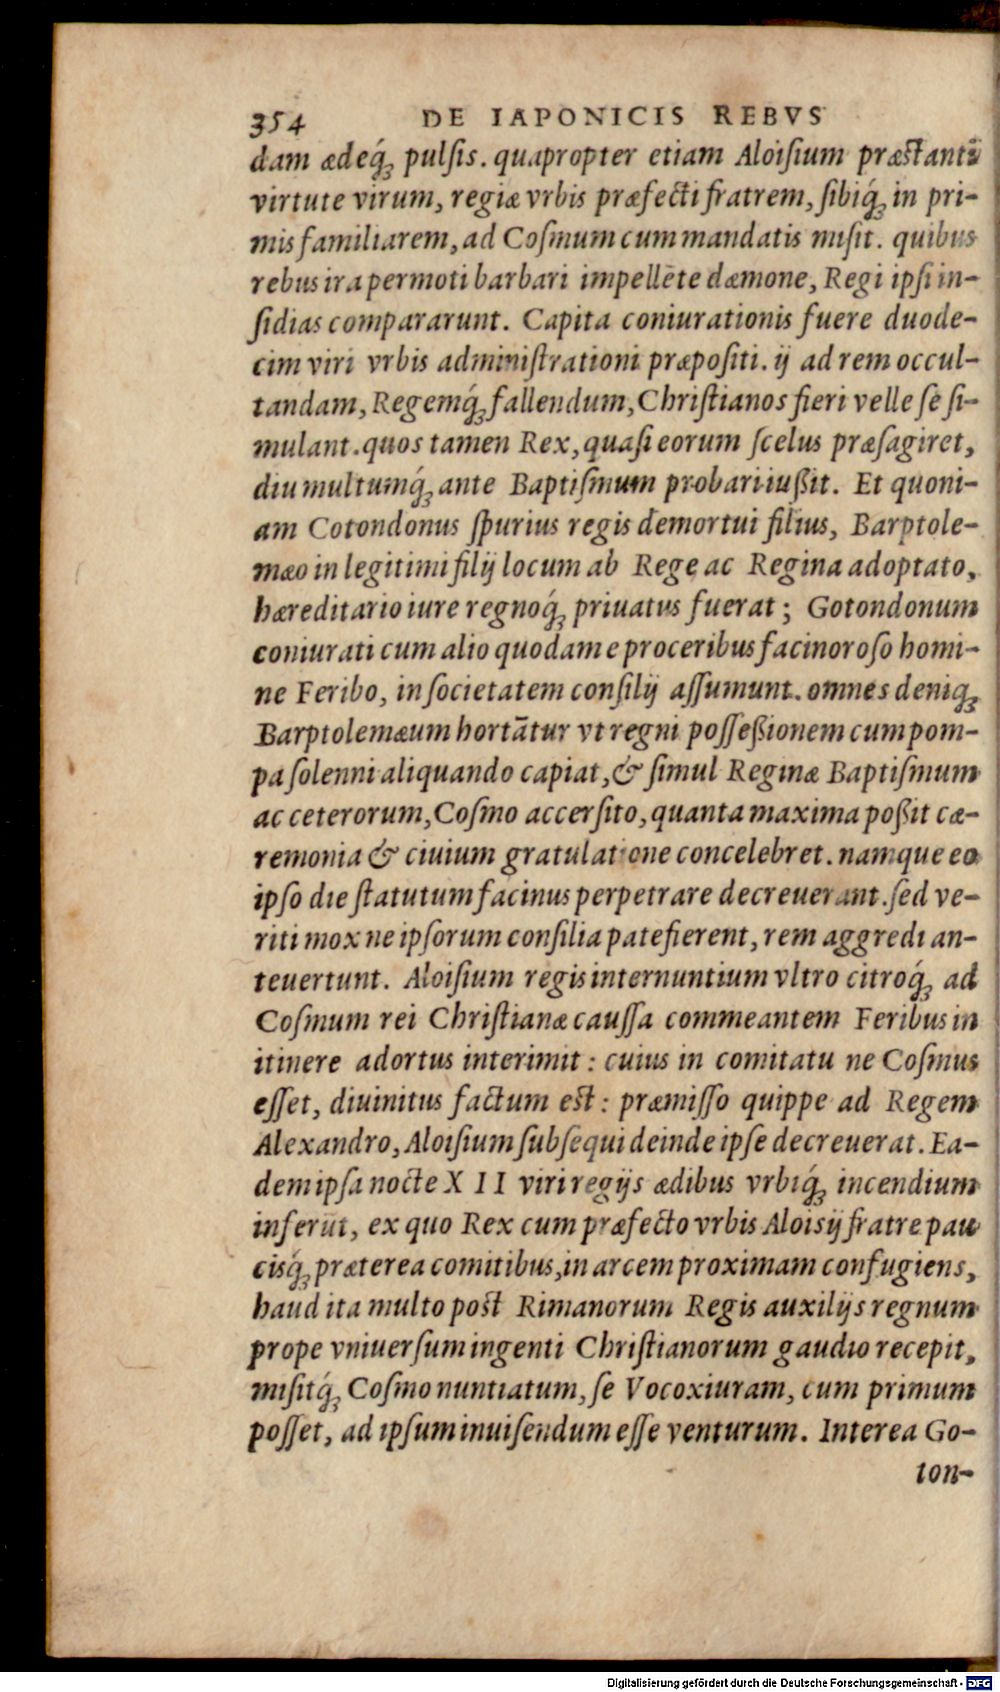 354 DE IAPONICIS REBVS
dam ædeq́ꝫ pulſis. quapropter etiam Aloiſium præstantū
virtute virum, regiæ vrbis præfecti fratrem, ſibiq́ꝫ in pri-
mis familiarem, ad Coſmum cum mandatis miſit. quibus
rebus ira permoti barbari impellēte dæmone, Regi ipſi in-
ſidias compararunt. Capita coniurationis fuere duode-
cim viri vrbis adminiſtrationi præpoſiti. ij ad rem occul-
tandam, Regemq́ꝫ fallendum, Chriſtianos fieri velle ſe ſi-
mulant. quos tamen Rex, quaſi eorum ſcelus præſagiret,
diu multumq́ꝫ ante Baptiſmum probari iußit. Et quoni-
am Cotondonus ſpurius regis demortui filius, Barptole-
mæo in legitimi filij locum ab Rege ac Regina adoptato,
hæreditario iure regnoq́ꝫ priuatus fuerat; Gotondonum
coniurati cum alio quodam e proceribus facinoroſo homi-
ne Feribo, in ſocietatem conſilij aſſumunt. omnes deniqꝫ
Barptolemæum hortātur vt regni poſſeßionem cum pom-
pa ſolenni aliquando capiat, & ſimul Reginæ Baptiſmum
ac ceterorum, Coſmo accerſito, quanta maxima poßit cæ-
remonia & ciuium gratulatione concelebret. namque eo
ipſo die ſtatutum facinus perpetrare decreuerant. ſed ve-
riti mox ne ipſorum conſilia patefierent, rem aggredi an-
teuertunt. Aloiſium regis internuntium vltro citroq́ꝫ ad
Coſmum rei Chriſtianæ cauſſa commeantem Feribus in
itinere adortus interimit: cuius in comitatu ne Coſmus
eſſet, diuinitus factum est: præmiſſo quippe ad Regem
Alexandro, Aloiſium ſubſequi deinde ipſe decreuerat. Ea-
dem ipſa nocte XII viri regijs ædibus vrbiq́ꝫ incendium
inferūt, ex quo Rex cum præfecto vrbis Aloisij fratre pau
cisq́ꝫ præterea comitibus, in arcem proximam confugiens,
haud ita multo post Rimanorum Regis auxilijs regnum
prope vniuerſum ingenti Chriſtianorum gaudio recepit,
miſitq́ꝫ Coſmo nuntiatum, ſe Vocoxiuram, cum primum
poſſet, ad ipſum inuiſendum eſſe venturum. Interea Go-
ton-
Digitalisierung gefördert durch die Deutsche Forschungsgemeinschaft - DFG